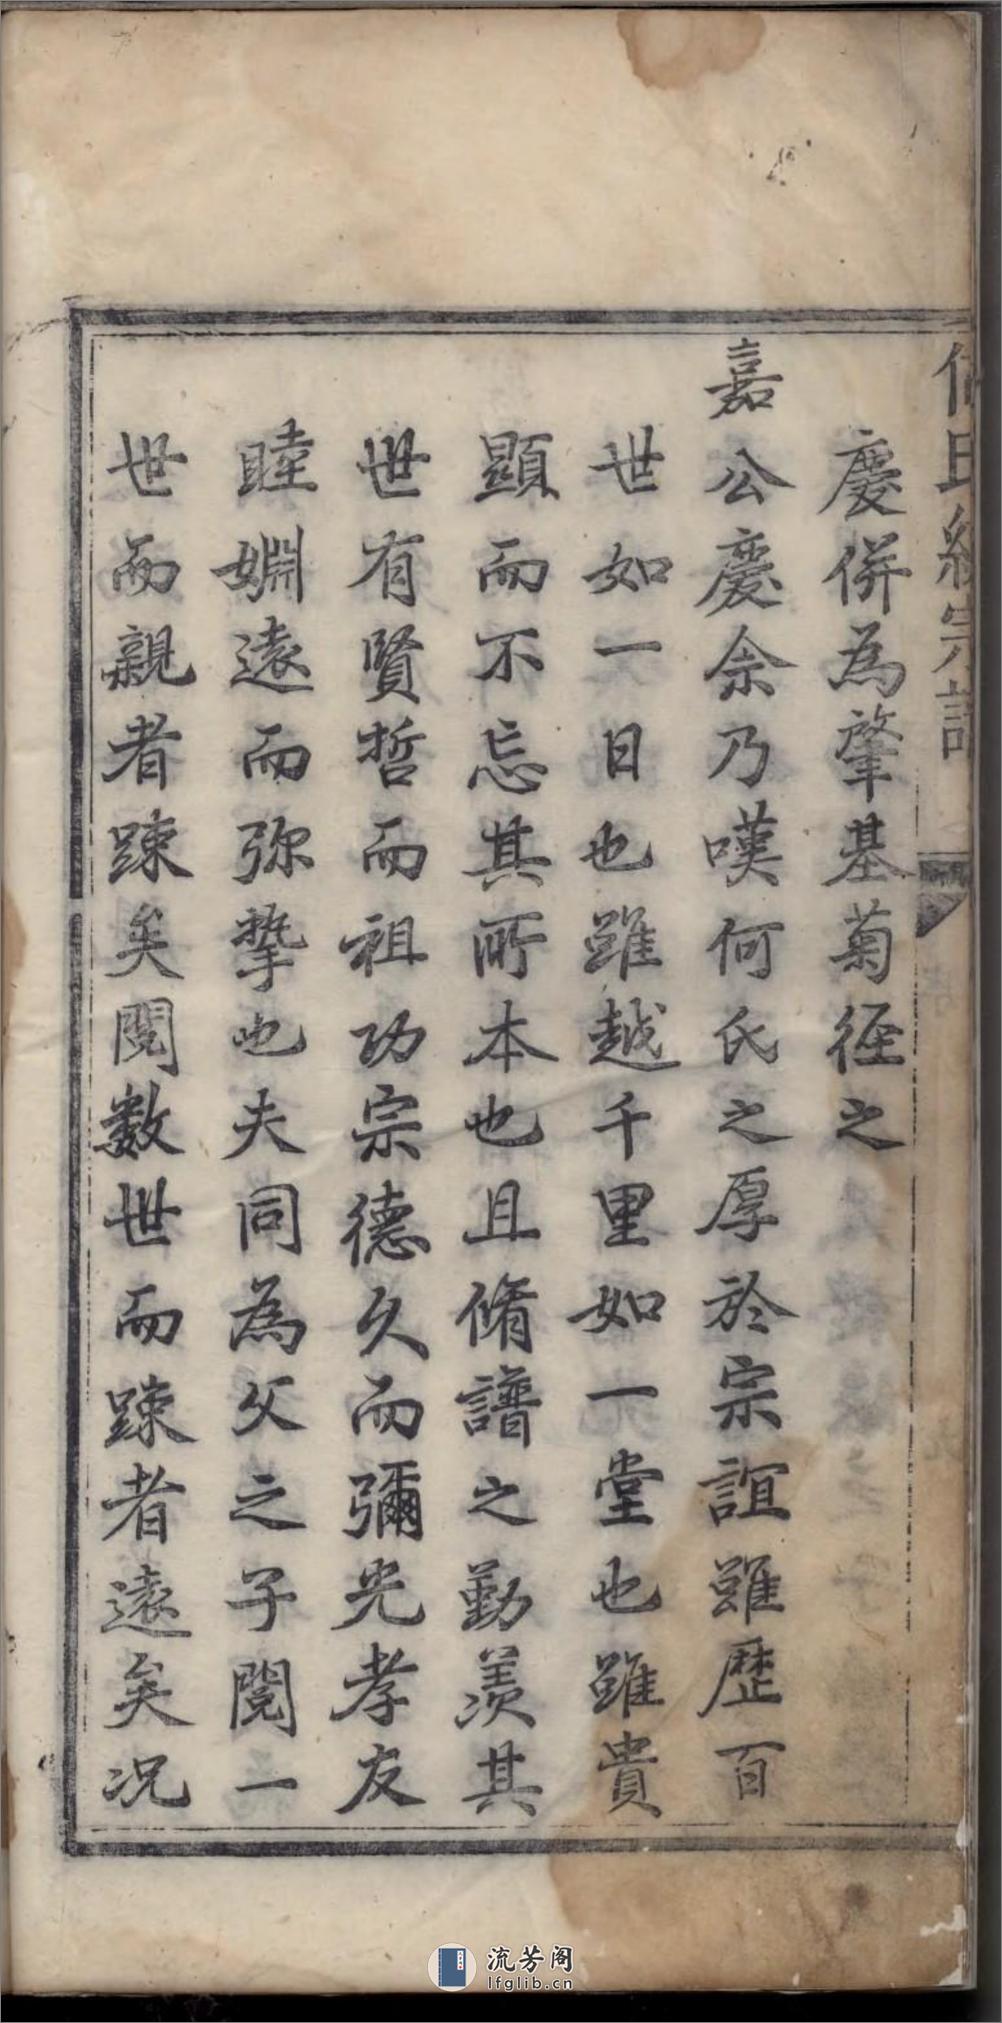 何氏統宗譜
慶併為肇基菊徑之
嘉公慶余乃嘆何氏之厚於宗誼雖歷百
世如一日也雖越千里如一堂也雖貴
顯而不忘其所本也且脩譜之勤羨其
世有賢哲而祖功宗德久而彌光孝友
睦婣遠而弥摯也夫同為父之子閱一
世而親者踈矣閱數世而踈者遠矣况
流芳阁
lfglib.cn